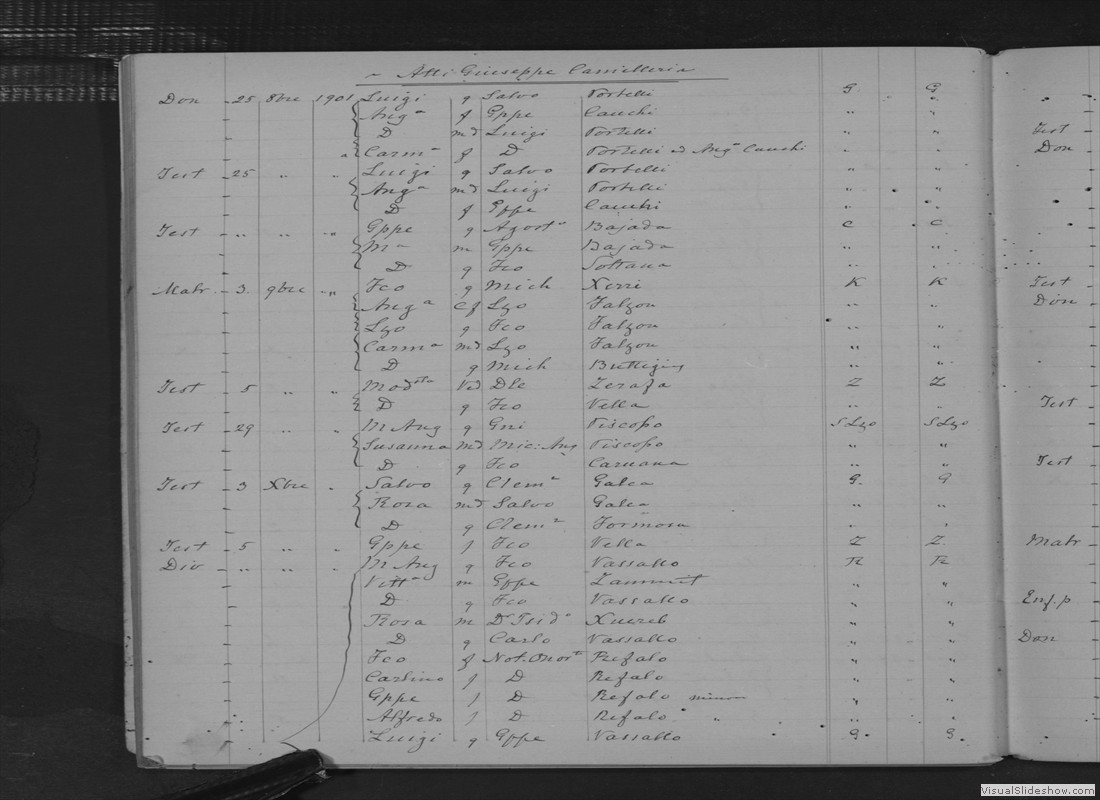 Atti Giuseppe Camelleria
Don 25 8bre 1901 Luigi q Salvo Portelli G. G.
Angª f Gppe Cauchi " "
D md Luigi Portelli " "
a Carmª f D Portelli ed Angª Cauchi " "
Test 25 " " Luigi q Salvo Portelli " "
Angª md Luigi Portelli " "
D f Gppe Cauchi " "
Test " " " Gppe q Agostº Bajada C C
Mª m Gppe Bajada " "
D q Fco Soltana " "
Matr 3 9bre " Fco q Mich Xerri K K
Angª Cf Lzo Falzon " "
Lzo q Fco Falzon " "
Carmª md Lzo Falzon " "
D q Mich Buttigieg " "
Test 5 " " Modstª Ved Dle Zerafa Z Z
D q Fco Vella " "
Test 29 " " M Ang q Gni Piscopo S Lzo S Lzo
Susanna md Mic: Ang Piscopo " "
D q Fco Caruana " "
Test 3 Xbre " Salvo q Clemº Galea G. G
Rosa md Salvo Galea " "
D q Clemº Formosa " "
Test 5 " " Gppe f Fco Vella Z Z.
Div " " " M Ang q Fco Vassallo R R
Vittª m Gppe Zammit " "
D q Fco Vassallo " "
Rosa m Dr Isidº Xuereb " "
D q Carlo Vassallo " "
Fco f Not. Onortº Refalo " "
Carlino f D Refalo " "
Gppe f D Refalo minor " "
Alfredo f D Refalo " " "
Luigi q Gppe Vassallo G. G.
Test
Don
Test
Don
Test
Test
Matr
Enf.p
Don
VisualSlideshow.com